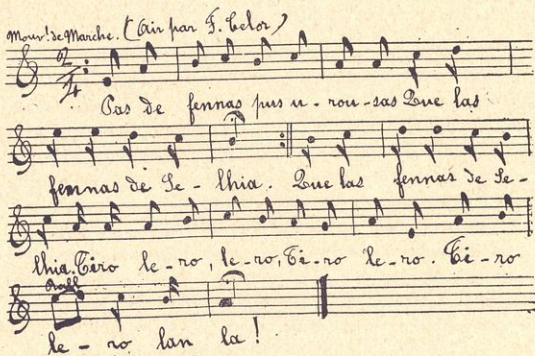 Mouv.t de Marche. (Air par F. Celor)
2/4
Pas de fennas pus u-rou-sas Que las
fennas de Se-lhia. Que las fennas de Se-
lhia. Tiro le-ro, le-ro, Ti-ro le-ro. Ti-ro
Rall
le-ro lan la!